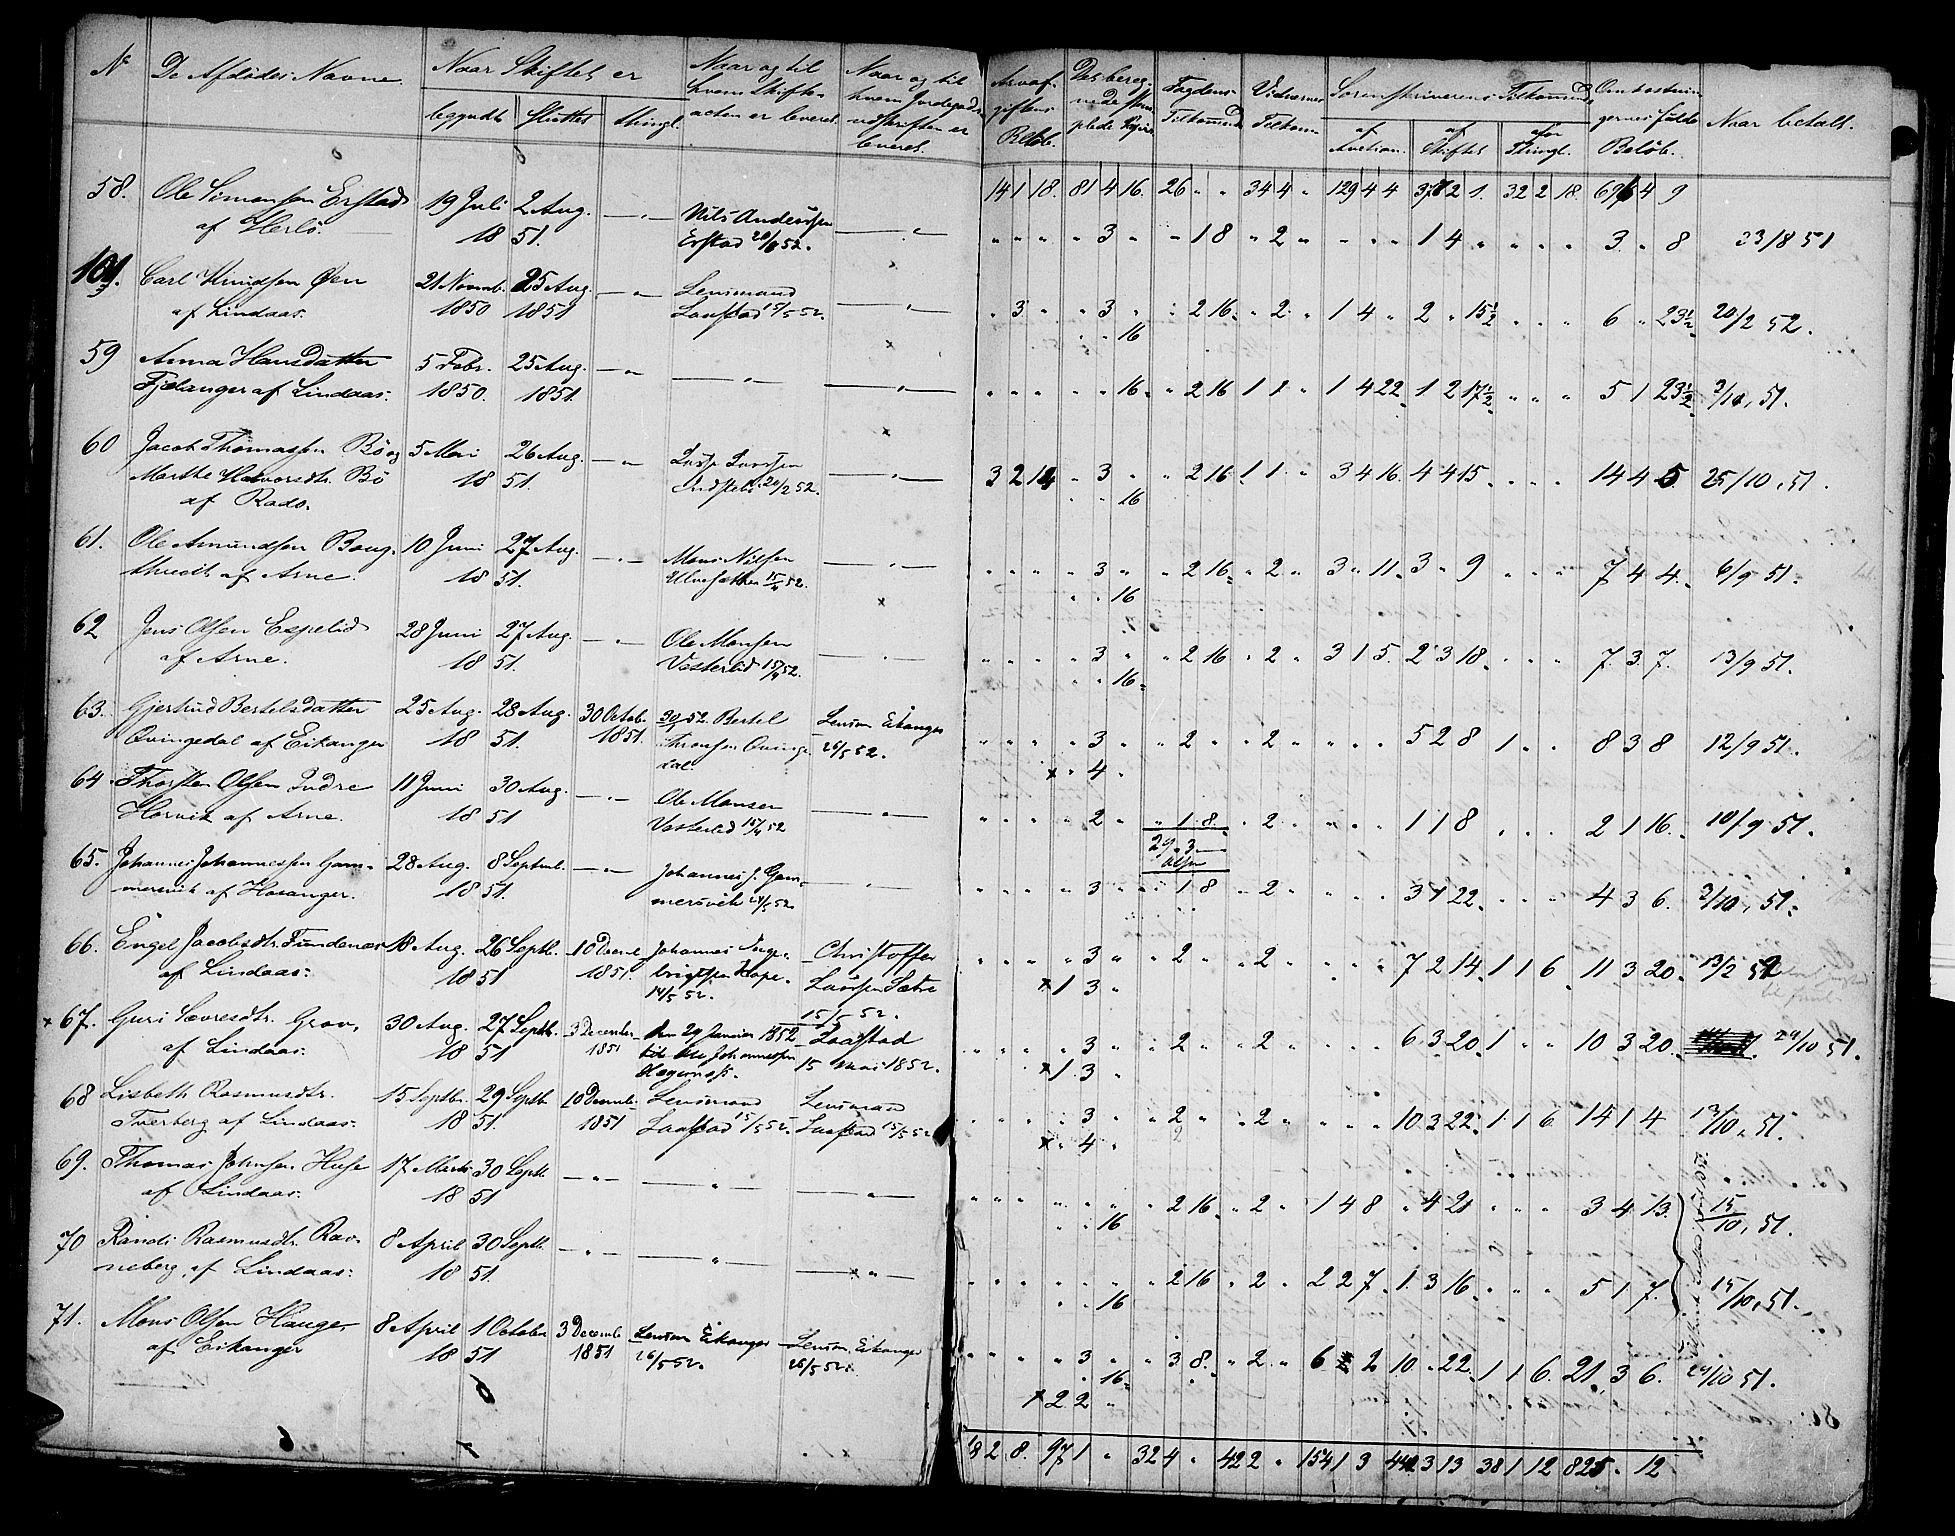 N.
De Afdödes Navne.
Naar Skiftet er
begyndt. sluttet. thingl.
Naar og til
hvem Skifte-
acten er leveret.
Naar og til
hvem Jordegods
udskriften er
leveret.
Arveaf-
giftens
Belöb.
Det bereg-
nede stem-
plede Papir
Fogdens
Tilkommende
Vidnernes
Tilkom.
Sorenskriverens Tilkommende
af Auction. af Skiftet for Thingl.
Omkostnin-
gernes fulde
Belöb.
Naar betalt.
141 18. 81 4 16. 26 " " 34 4 " 129 4 4 2 1. 32 2 18. 4 9
58. Ole Simonsen Erstad 19 Juli 2 Aug. Nils Anderssen
af Herlö. 18 51. Erstad 52.
3 " 1 8 " 2 " 1 4 " 3 " 8 23/8 51
101. Carl Knudsen Öen 21 Novmb. 25 Aug. Lensmand
af Lindaas. 1850 1851 Laastad 15/5 52.
" 3 " 3 " 2 16 " 2 " 1 4 " 2 " 15½ 6 " 23½ 20/2 52.
16
59 Anna Hansdatter 5 Febr. 25 Aug.
Fjelanger af Lindaas. 1850. 1851.
16 " 2 16 1 1 " 1 4 22 1 2 17½ 5 1 23½ 3/10, 51.
60 Jacob Thomassen Bö og 5 Mai 26 Aug.
Marthe Halvorsdtr. Bö 18 51. 20/2 52.
af Radö.
3 2 14 " 3 " 2 16 1 1 " 3 4 16. 4 4 15 14 4 5 25/10, 51.
16
61. Ole Amundsen Boug- 10 Juni 27 Aug. Mons Nilsen
thvedt af Arne. 18 51. 15/4 52.
3 " 2 16 " 2 " 3 " 11 3 " 9 7 4 4 6/9 51.
16
62 Jens Olsen Espelid 28 Juni 27 Aug. Ole Monsen
af Arne. 18 51. Vesterlid 15/4 52.
3 " 2 16 " 2 " 3 1 5. 2 3 18 7. 3. 7. 13/9 51.
16
63. Gjertrud Bertelsdatter 25 Aug. 28 Aug. 30 Octob. Bertel Lensm. Eikanger
Qvingedal af Eikanger 18 51. 1851. 26/5 52.
dal.
3 " 2 " 2 " 5 2 8 1 " " 8 3 8 12/9 51.
x " 4 "
64 Thorsten Olsen Indre 11 Juni 30 Aug. Ole Monsen
Horvik af Arne. 18 51 Vesterlid 15/4 52
2 " 1 8 " 2 " 1 1 8 2 1 16. 10/9 51.
29 " 3
65. Johannes Johannessen Gam- 28 Aug. 8 Septmb. Johannes J. Gam-
mersvik af Hosanger. 18 51. mersvik 24/5 52
3 " 1 8 " 2 " 3 1 22 4 3 6. 3/10, 51.
66. Engel Jacobsdtr. Fundenæs 18 Aug. 26 Septb. 10 Decmb Johannes Inge- Christoffer
af Lindaas. 18 51 1851. brigtsen Hope. Larssen Sætre
14/5 52. 15/5 52.
3 " 2 " 2 " 7 2 14 1 1 6 11 3 20 13/2 52
x 1 3 "
x 67. Guri Sævresdtr. Grov, 30 Aug. 27 Septb. 3 December den 29 Januar 1852 Laastad
af Lindaas. 18 51 1851 til Ole Johannessen 15 Mai 1852.
3 " 2 " 2 " 6 3 20 1 " " 10 3 20 29/10 51.
x 1. 3 "
68 Lisbeth Rasmusdtr. 15 Septb. 29 Septb 10 Decmb. Lensmand Lensmand
Tverberg af Lindaas. 18 51. 1851 Laastad 15/5 52. Laastad 15/5 52
3 " 2 " 2 " 10 3 22 1 1 6 14 1 4 13/10, 51.
x " 4 "
69. Thomas Johnsen Huse 17 Marts 30 Septb
af Lindaas. 18 51
2 16 " 2 " 1 4 8 " 4 21 3 4 13. 15/10, 51.
16
70 Randi Rasmusdtr. Rav- 8 April 30 Septb
neberg, af Lindaas. 18 51.
2 16 " 2 " 2 2 7 1. 3 16 5 1 7. 15/10, 51.
16
71. Mons Olsen Hauge, 8 April 1 October 3 Decemb Lensm. Eikanger Lensm. Eikanger
af Eikanger 18 51 1851 26/5 52. 26/5 52.
3 " 3 8. " 2 " 6 2 10. " 22 1 1 6. 21 3 6. 29/10 51.
16
x 2 2 "
2 8. 97 1 " 32 4 " 42 2 " 154 1 3 3 13 38 1 12 825 " 12